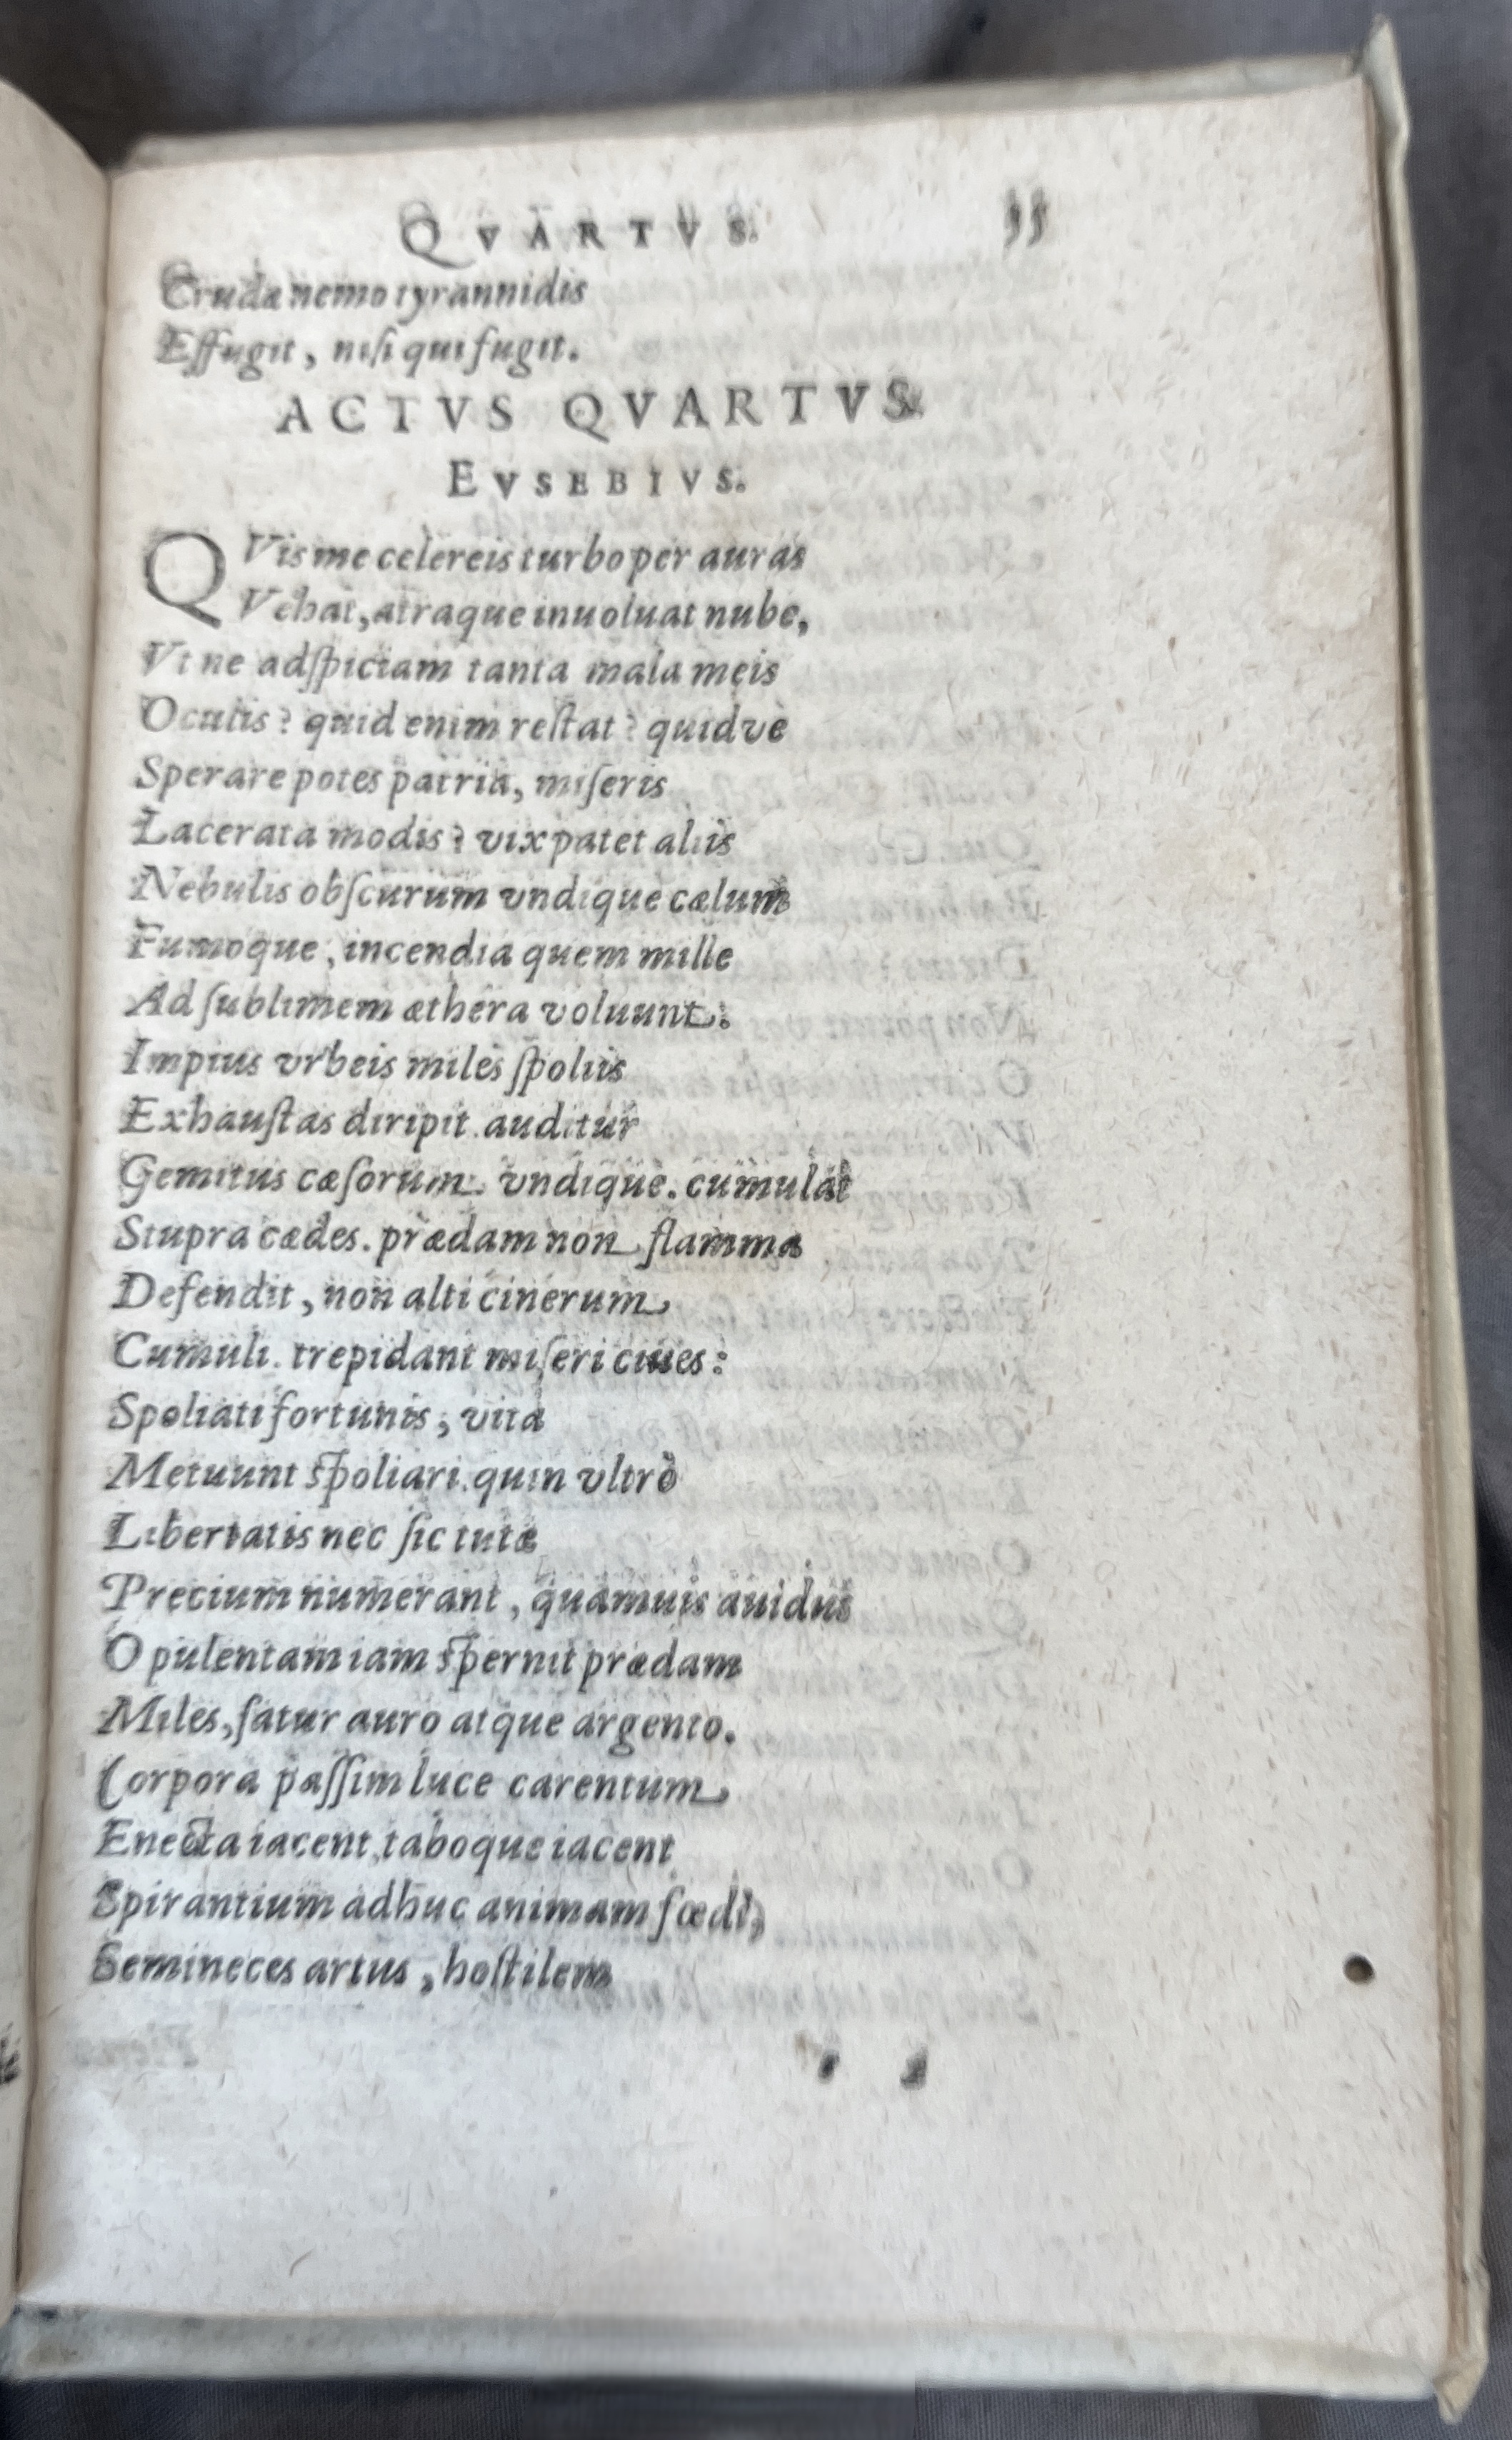 QVARTVS. 55
Crudæ nemo tyrannidis
Effugit, nisi qui fugit.
ACTVS QVARTVS.
EVSEBIVS.
QVis me celereis turbo per auras
Vehat, atraque inuoluat nube,
Vt ne adſpiciam tanta mala meis
Oculis? quid enim reſtat? quidve
Sperare potes patria, miſeris
Lacerata modis? vix patet aliis
Nebulis obſcurum vndique cælum
Fumoque, incendia quem mille
Ad ſublimem æthera voluunt.
Impius vrbeis miles ſpoliis
Exhauſtas diripit. auditur
Gemitus cæſorum vndique. cumulat
Stupra cædes. prædam non flamma
Defendit, non alti cinerum
Cumuli. trepidant miſeri ciues:
Spoliati fortunis, vita
Metuunt ſpoliari. quin vltrò
Libertatis nec ſic tutæ
Precium numerant, quamuis auidus
Opulentam iam ſpernit prædam
Miles, ſatur auro atque argento.
Corpora paſſim luce carentum
Enecta iacent, taboque iacent
Spirantium adhuc animam fœdi,
Semineces artus, hoſtilem